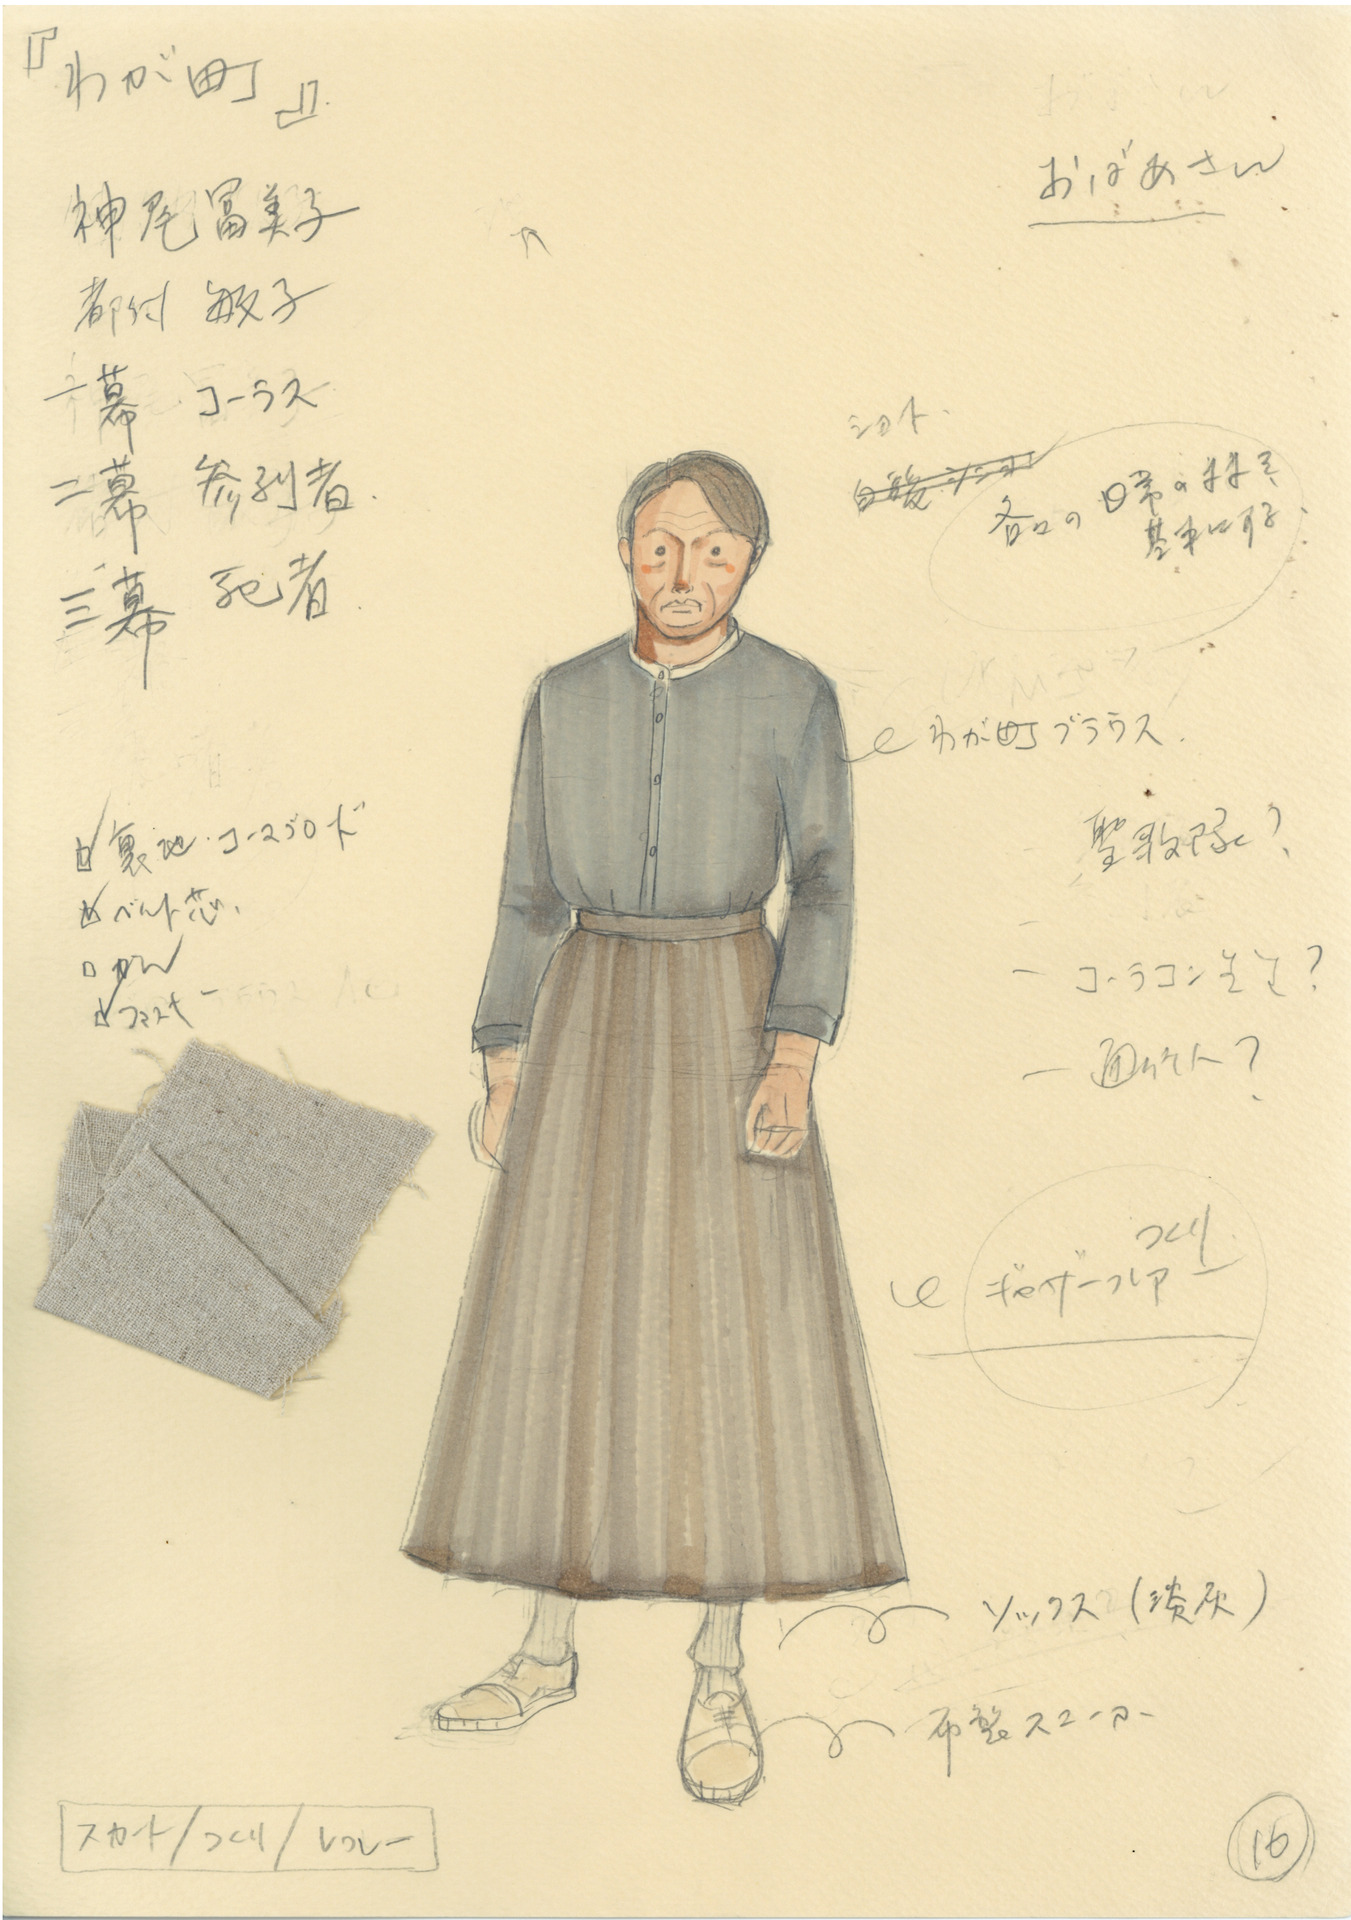 『わが町』
おばあさん
神尾冨美子
都付 敏子
一幕 コーラス
二幕 参列者.
三幕 死者.
ショート.
各々の日常のままを
基本にする.
わが町ブラウス.
聖歌隊?
裏地・コースブロード
ベルト芯.
カン
ファスナー
- コーラコン生と?
つくり
ギャザーフレア
ソックス(淡灰)
布製スニーカー
スカート/つくり/レフレー
16